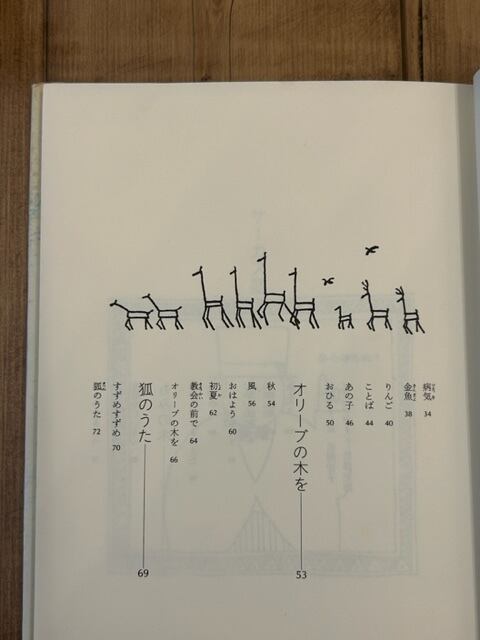 病気 34
金魚 38
りんご 40
ことば 44
あの子 46
おひる 50
オリーブの木を 53
秋 54
風 56
おはよう 60
初夏 62
教会の前で 64
オリーブの木を 66
狐のうた 69
すずめすずめ 70
狐のうた 72